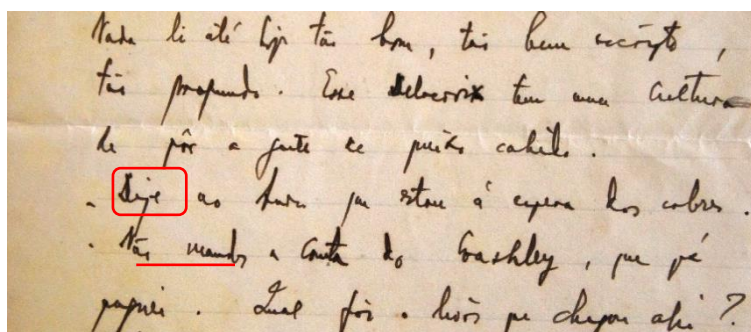 Nada li até hoje tão bom, tão bem escripto,
tão profundo. Esse Delacroix tem uma cultura
de pôr a gente de queixo cahido.
. Dize ao que estou á espera dos cobres.
. Não mandes a conta do Crashley, que já
paguei. Qual foi o livro que chegou ahi?